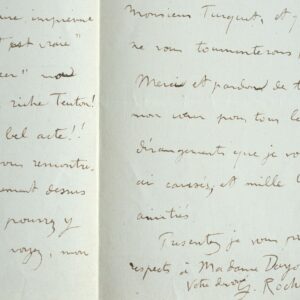 une imprimée
est vraie"
" mod
riche Teuton!
bel acte!!
vous rencontre-
ement dessus
pourrez y
voyez, mon
Monsieur Turquet, et
ne vous tourmenterons
Merci et pardon de t
mon cœur pour tous le
dérangements que je vo
ai causés, et mille
amitiés
Présentez je vous pri
respects à Madame
Votre dévoué